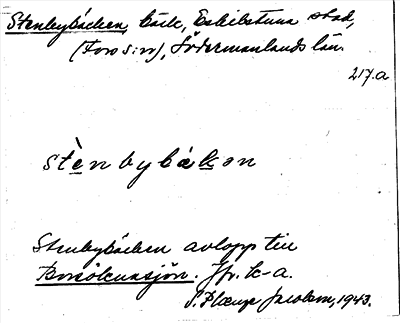 Stenbybäcken, bäck, Eskilstuna stad,
(Fors s:n), Södermanlands län.
217.a
stènbybäkən
Stenbybäcken avlopp till
Borsöknasjön. Jfr. k-a.
S. Plænge Jacobson, 1943.